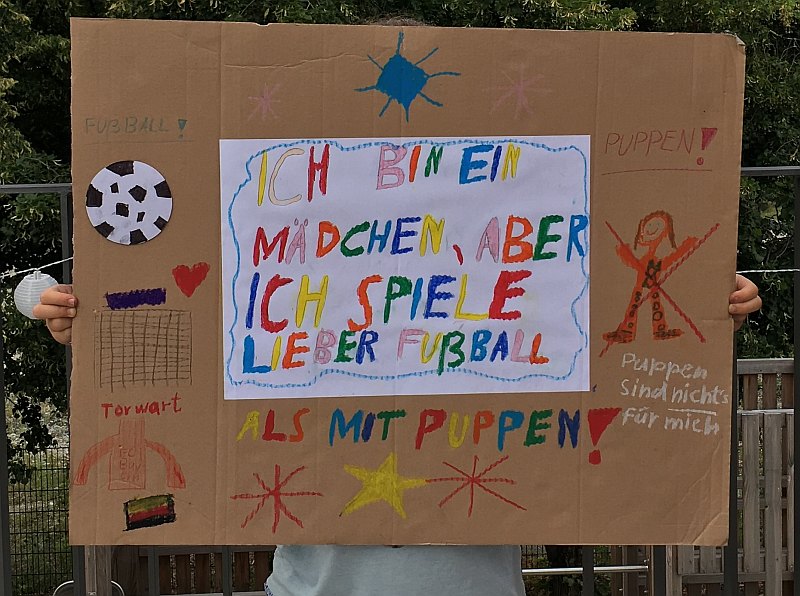 FUßBALL!
PUPPEN!
ICH BIN EIN
MÄDCHEN, ABER
ICH SPIELE
LIEBER FUßBALL
ALS MIT PUPPEN!
Torwart
Puppen
sind nichts
für mich